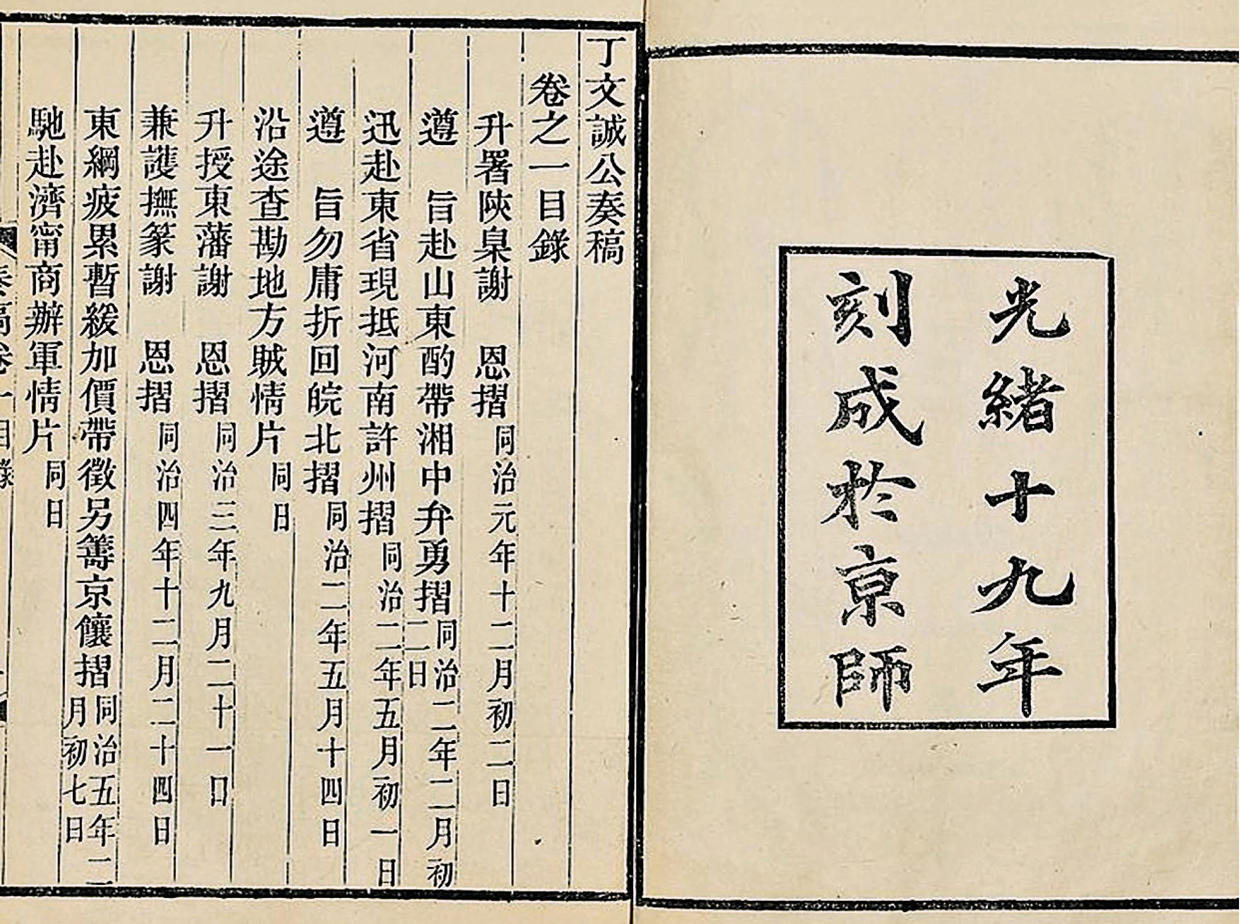 光緒十九年
刻成於京師
丁文誠公奏稿
卷之一目錄
升署陝臬謝　恩摺同治元年十二月初二日
遵　旨赴山東酌帶湘中弁勇摺同治二年二月初二日
迅赴東省現抵河南許州摺同治二年五月初一日
遵　旨勿庸折回皖北摺同治二年五月十四日
沿途查勘地方賊情片同日
升授東藩謝　恩摺同治三年九月二十一日
兼護撫篆謝　恩摺同治四年十二月二十四日
東綱疲累暫緩加價帶徵另籌京饟摺同治五年二月初七日
馳赴濟甯商辦軍情片同日
奏稿卷一目錄